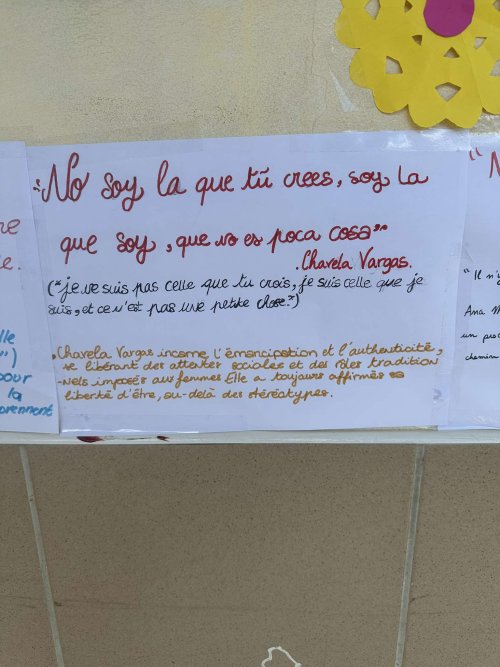 "No soy la que tú crees, soy la
que soy, que no es poca cosa"
. Chavela Vargas.
("je ne suis pas celle que tu crois, je suis celle que je
suis, et ce n'est pas une petite chose.")
. Chavela Vargas incarne l'émancipation et l'authenticité,
se libérant des attentes sociales et des rôles tradition
-nels imposés aux femmes Elle a toujours affirmés sa
liberté d'être, au-delà des stéréotypes.
re
e.
lle
")
pour
la
prennent
"N
"Il n'y
Ana M
un pro
chemin